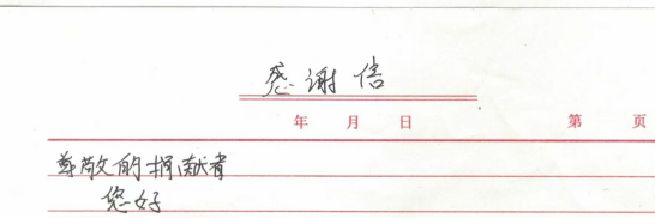 感谢信
年 月 日 第 页
尊敬的捐献者
您好